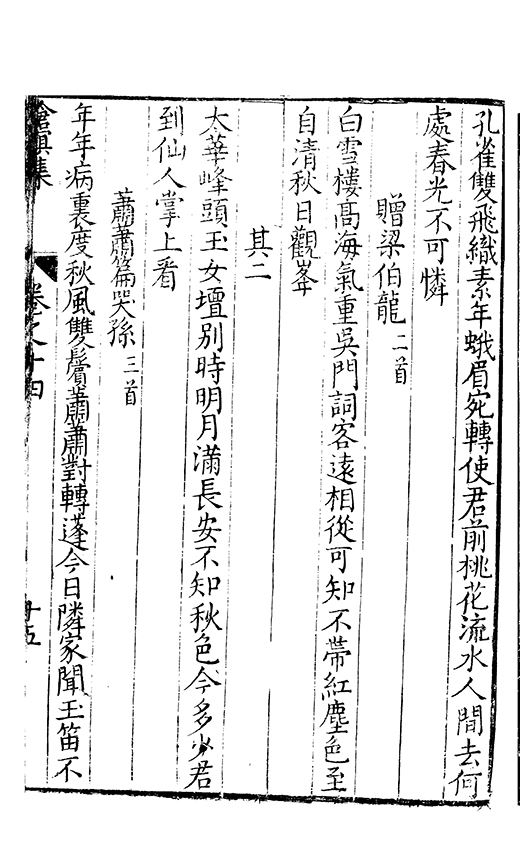 孔雀雙飛織素年蛾眉宛轉使君前桃花流水人間去何
處春光不可憐
贈梁伯龍二首
白雪樓高海氣重吳門詞客遠相從可知不帶紅塵色至
自清秋日觀峯
其二
太華峰頭玉女壇別時明月滿長安不知秋色今多少君
到仙人掌上看
蕭蕭篇哭孫三首
年年病裏度秋風雙鬢蕭蕭對轉蓬今日隣家聞玉笛不
滄溟集
卷之十四
十五